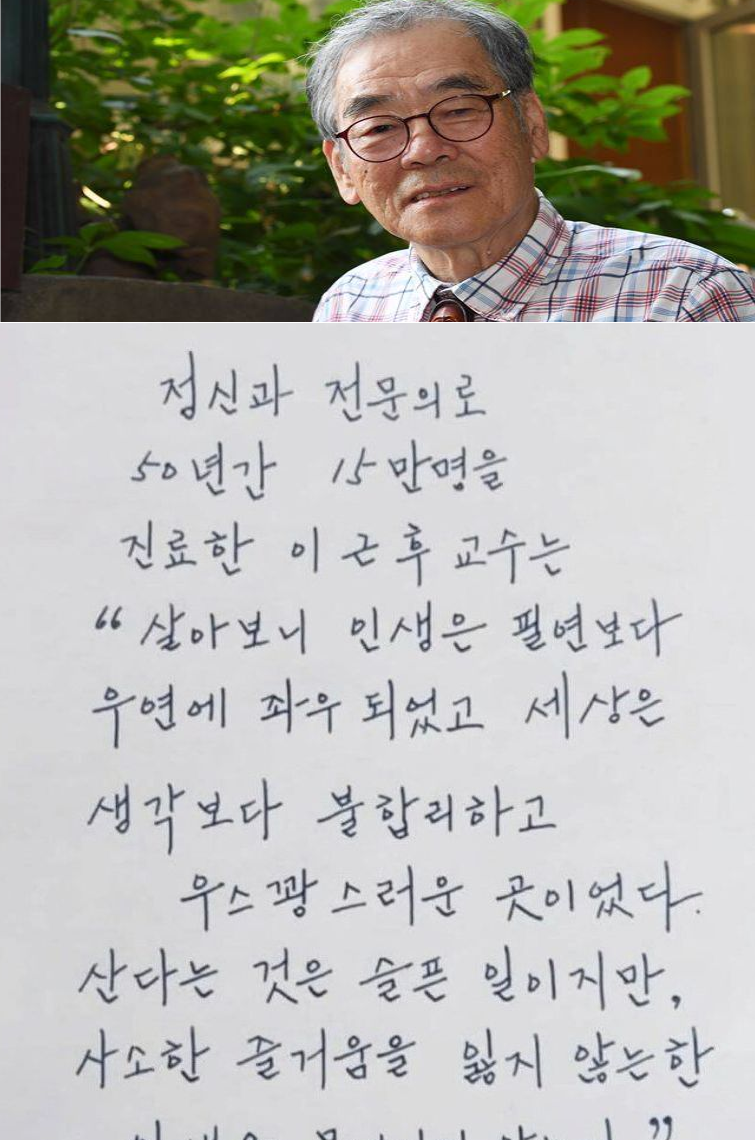 정신과 전문의로
50년간 15만명을
진료한 이근후 교수는
"살아보니 인생은 필연보다
우연에 좌우 되었고 세상은
생각보다 불합리하고
우스꽝스러운 곳이었다.
산다는 것은 슬픈 일이지만,
사소한 즐거움을 잃지 않는한
"